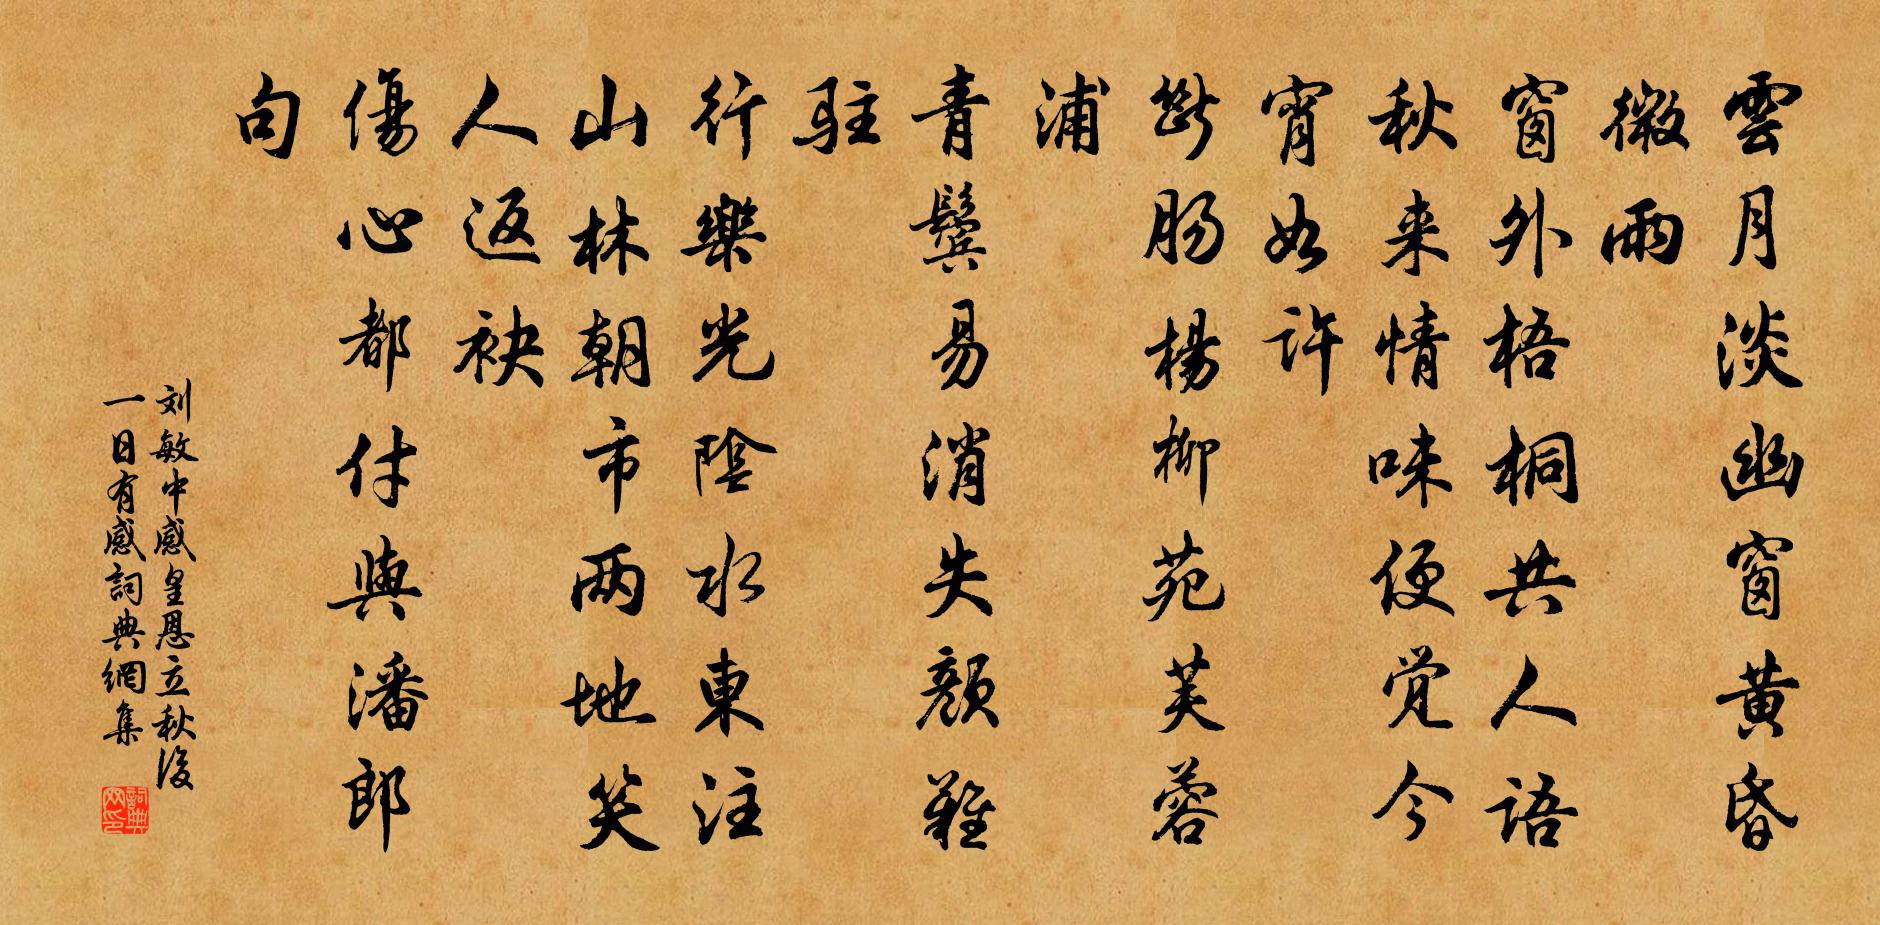 雲月淡幽窗黃昏
微雨
窗外梧桐共人語
秋来情味便覚今
宵如許
斷肠楊柳苑芙蓉
浦
青鬓易消失顏難
駐
行樂光陰水東注
山林朝市两地笑
人返袂
傷心都付與潘郎
句
刘敏中感皇恩立秋後
一日有感詞典網集
詞典网印